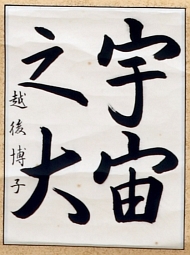 宇宙
之大
越後博子